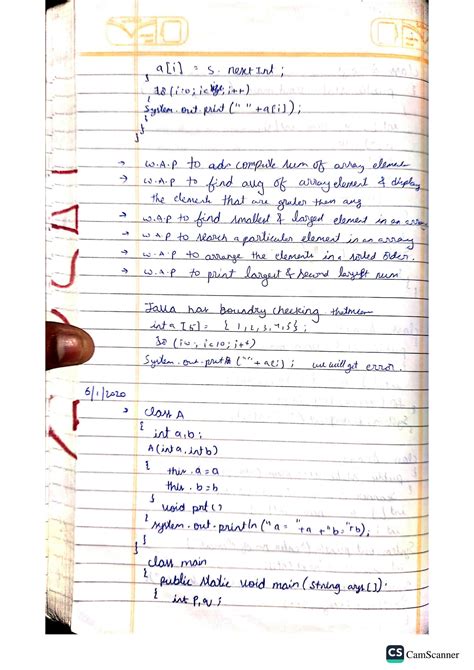 a[i] = s. nextInt ;
}
for (i=0; i< size; i++)
{
System. out. print (" " +a[i]) ;
}
}
→ W.A.P to compute sum of array element
→ W.A.P to find avg of array element & display
the elements that are greater than avg
→ W.A.P to find smallest & largest element in an array
→ W.A.P to search a particular element in an array
→ W.A.P to arrange the elements in a sorted order.
→ W.A.P to print largest & second largest num
Java has boundry checking
int a [5] = { 1, 2, 3, 4, 5 } ;
for (i=0, i<10; i++)
System. out. print (" "+ a[i) ; we will get error.
6/1/2020
→ class A
{
int a, b ;
A (int a, int b)
{
this . a = a
this . b = b
}
void pnt ()
{ system. out. println ("a = "+a +"b = "+b);
}
}
class main
{
public static void main ( String args[])
{ int p, q ;
CS CamScanner